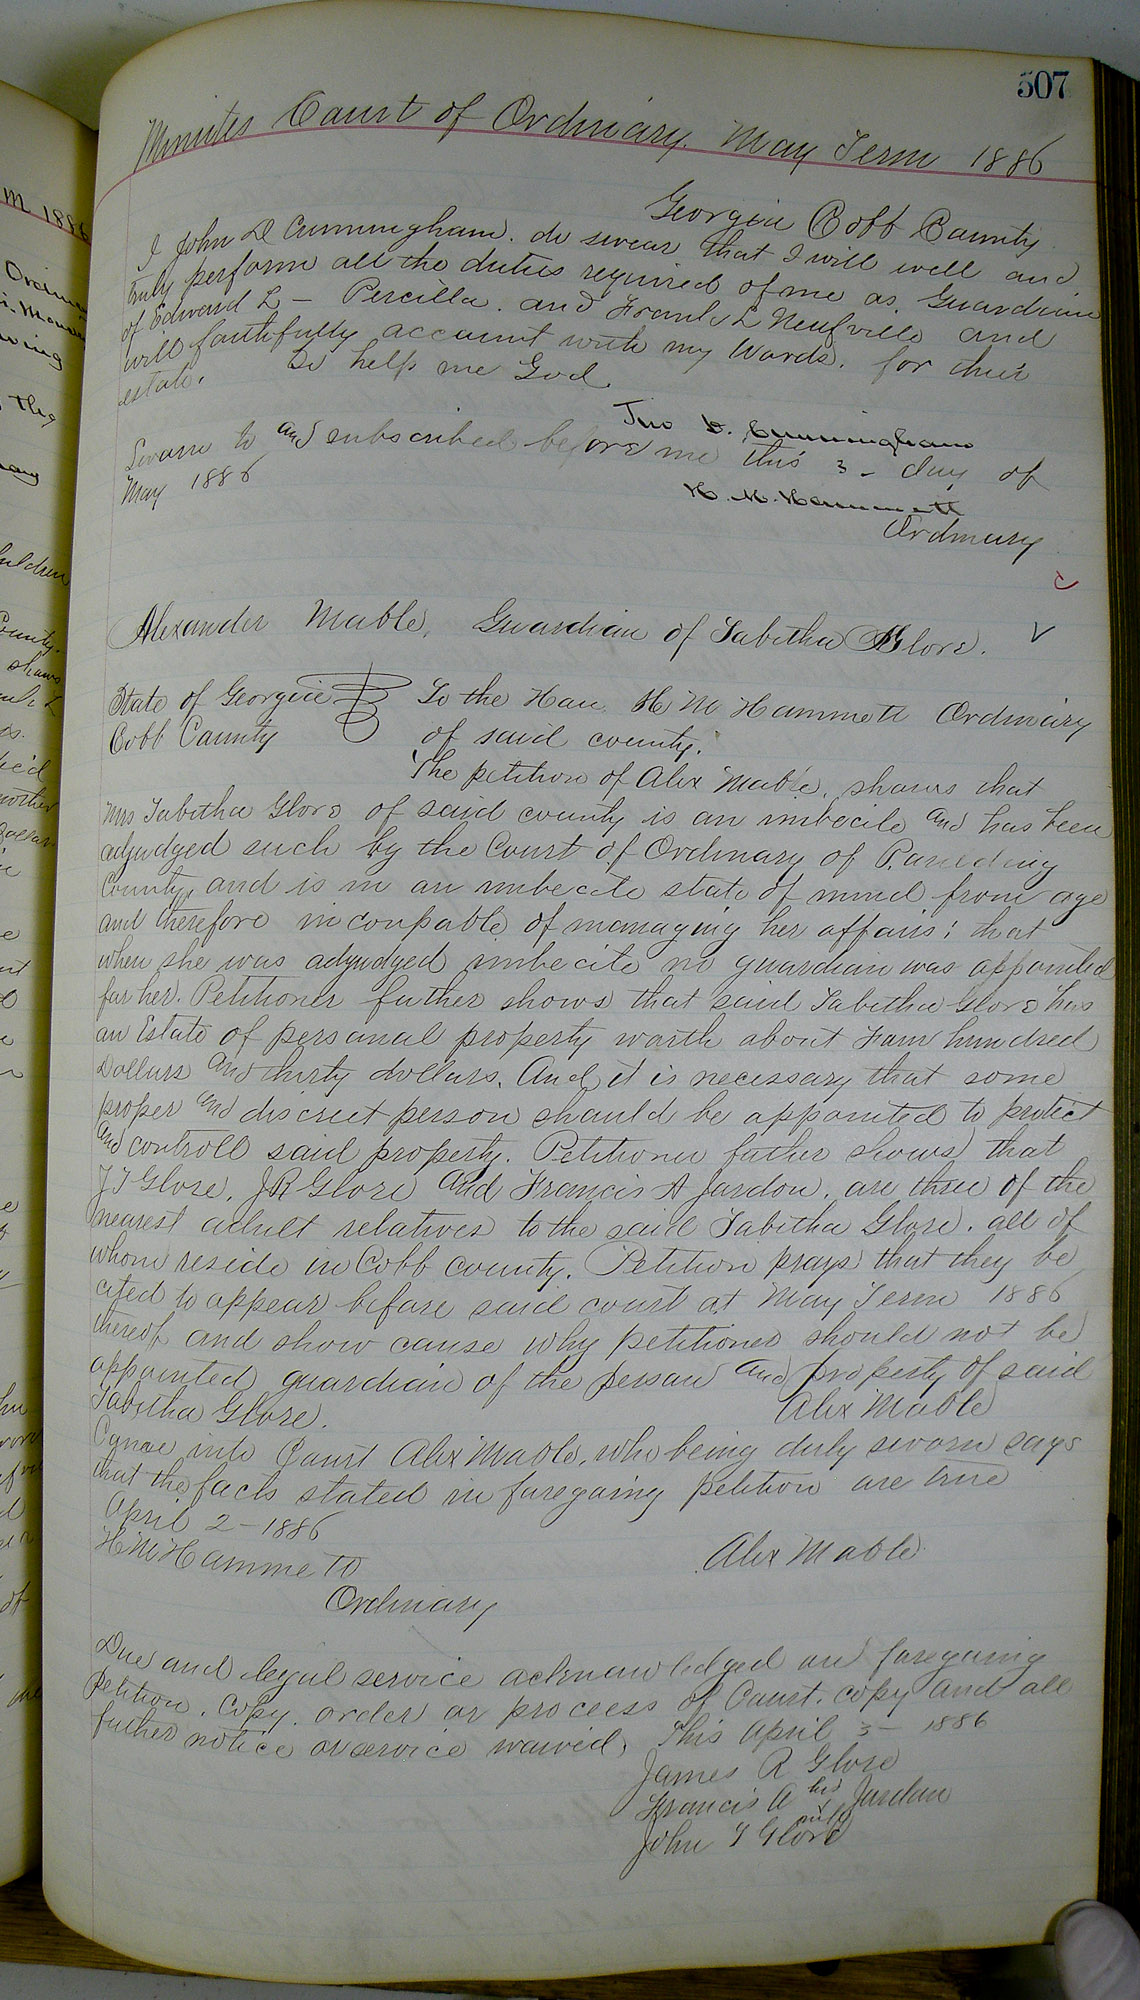 507
Minutes Court of Ordinary. May Term 1886
Georgia Cobb County
I John D Cunningham. do swear that I will well and
truly perform all the duties required of me as Guardian
of Edward L - Percilla. and Frank L Neufville and
will faithfully account with my Wards. for their
estate. So help me God.
Jno D. Cunningham
Sworn to and subscribed before me this 3 - day of
May 1886
H. M. Hammett
Ordinary
Alexander Mable, Guardian of Tabitha Glore.
State of Georgia
Cobb County
To the Hon H M Hammett Ordinary
of said county.
The petition of Alex Mable, shows that
Mrs Tabitha Glore of said county is an imbecile and has been
adjudged such by the Court of Ordinary of Paulding
County, and is in an imbecile state of mind from age
and therefore incoupable of managing her affairs; that
when she was adjudged imbecile no guardian was appointed
for her. Petitioner futher shows that said Tabitha Glore has
an Estate of personal property worth about Four hundred
Dollars and thirty dollars. And it is necessary that some
proper and discreet person should be appointed to protect
and controll said property. Petitioner futher shows that
J T Glore, J R Glore and Francis A Jardon, are three of the
nearest adult relatives to the said Tabitha Glore. all of
whom reside in Cobb county. Petition prays that they be
cited to appear before said court at May Term 1886
thereof and show cause why petitioner should not be
appointed guardian of the person and property of said
Tabitha Glore.
Alex Mable
Came into Court Alex Mable, who being duly sworn says
that the facts stated in foregoing petition are true
April 2 - 1886
H M Hammett
Alex Mable
Ordinary
Due and legal service acknowledged on foregoing
Petition. Copy. order or process of Court. copy and all
futher notice or service waived, This April 3 - 1886
James R Glore
Francis A his x mark Jardon
John T Glore